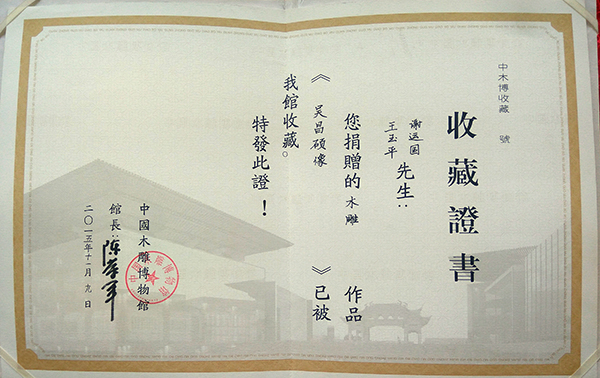 中木博收藏 號
收藏證書
谢运国
王玉平 先生：
您捐贈的木雕 作品
《吴昌硕像 》已被
我館收藏。
特發此證！
中國木雕博物館
館長：
二〇一五年十二月九日